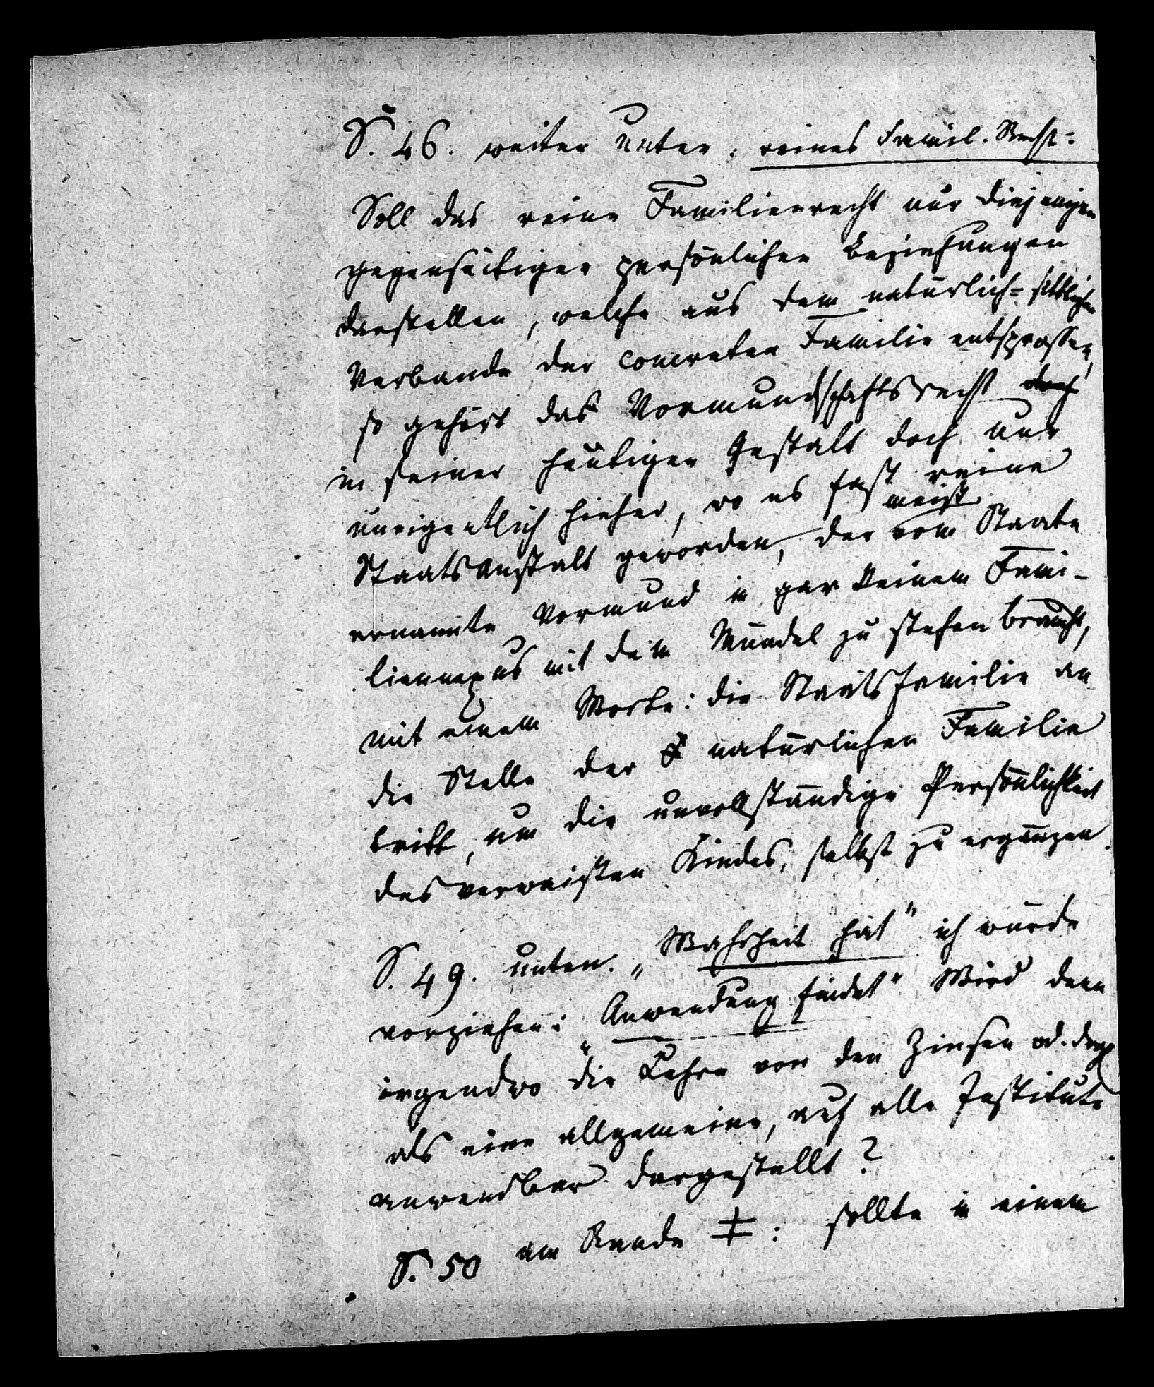 S. 46. weiter unten. reines Famil. Recht:
Soll das reine Familienrecht nur diejenigen
gegenseitigen persönlichen Beziehungen
darstellen, welche aus dem natürlich-sittlichen
Verbande der concreten Familie entsprossen,
so gehört das Vormundschaftsrecht doch
in seiner heutigen Gestalt doch nur
uneigentlich hieher, wo es fast reine
meist
Staatsanstalt geworden, der vom Staate
ernannte Vormund in gar keinem Fami-
liennexus mit dem Mündel zu stehen braucht,
mit einem Worte: die Staatsfamilie an
die Stelle der natürlichen Familie
tritt, um die unvollständige Persönlichkeit
des verwaisten Kindes, selbst zu ergänzen.
S. 49. unten. „Wahrheit hat" ich würde
vorziehen: „Anwendung findet" Wird denn
irgendwo die Lehre von den Zinsen od. dergl
als eine allgemeine, auf alle Institute
anwendbar dargestellt?
S. 50 am Rande ‡: sollte in einem